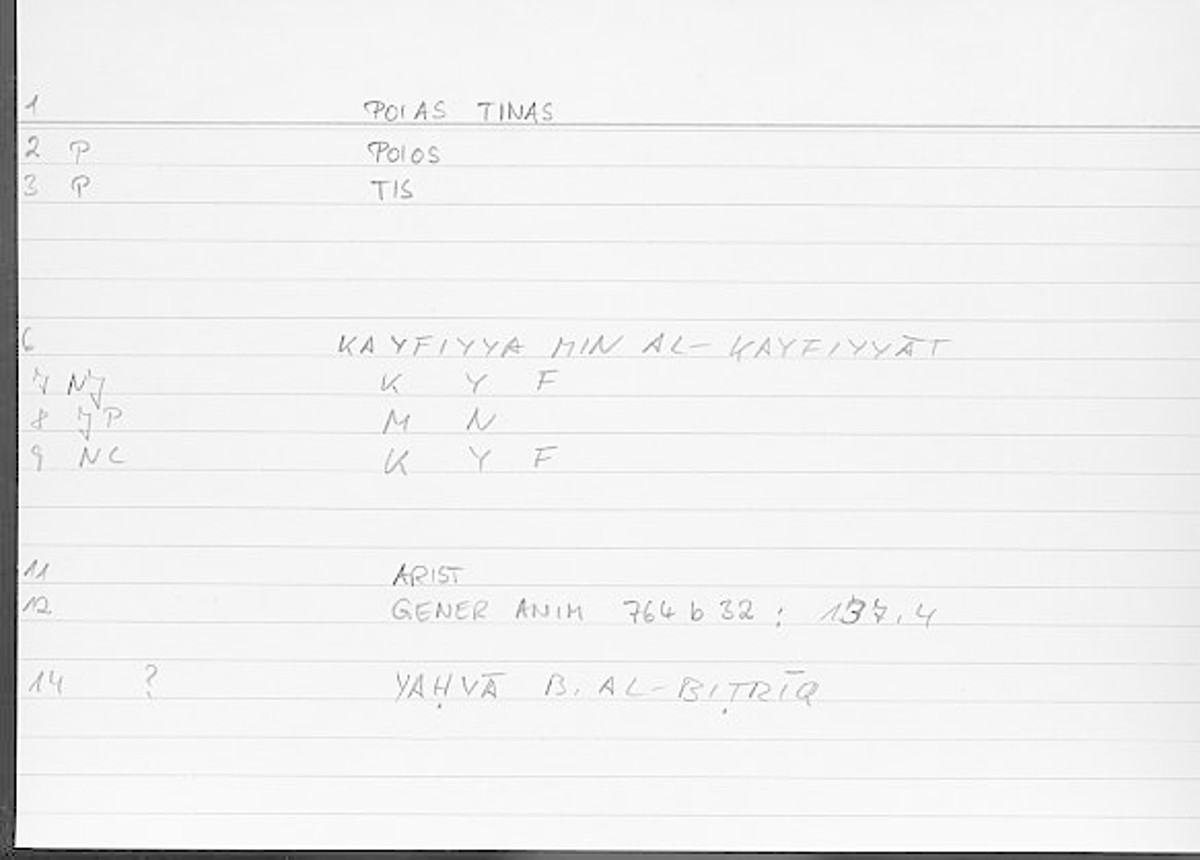 1 POIAS TINAS
2 P POIOS
3 P TIS
6 KAYFIYYA MIN AL-KAYFIYYĀT
7 NJ K Y F
8 JP M N
9 NC K Y F
11 ARIST
12 GENER ANIM 764 b 32 ; 137.4
14 ? YAḤYĀ B. AL-BIṬRĪQ